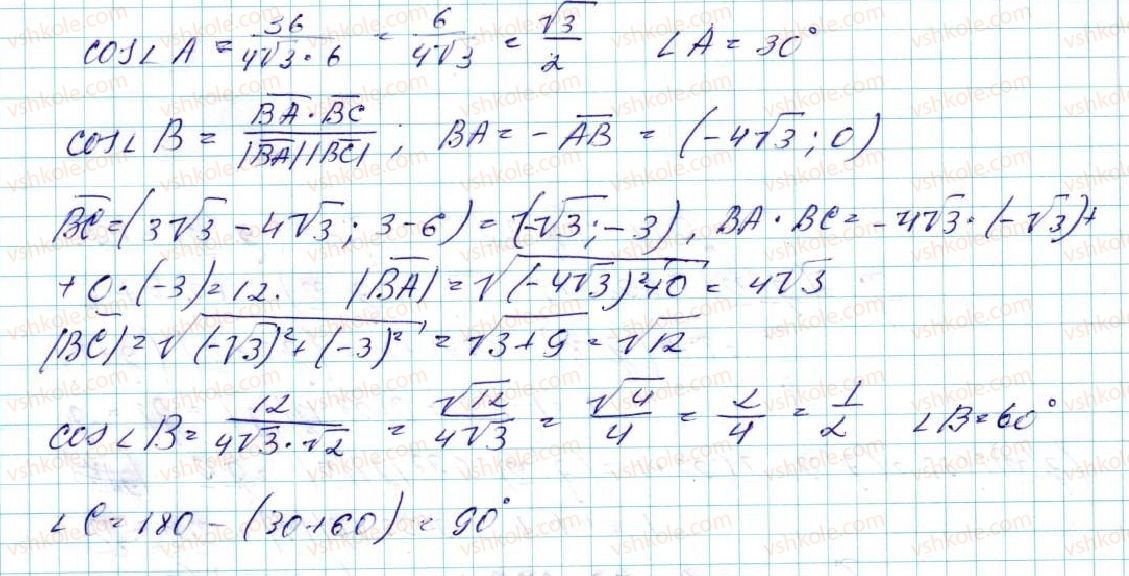 cos∠A = 36/(4√3·6) = 6/(4√3) = √3/2    ∠A = 30°
cos∠B = (B̅A̅·B̅C̅)/(|B̅A̅||B̅C̅|); BA = -A̅B̅ = (-4√3; 0)
B̅C̅ = (3√3 - 4√3; 3-6) = (-√3; -3), BA·BC = -4√3·(-√3)+
+0·(-3) = 12.  |B̅A̅| = √((-4√3)²+0) = 4√3
|B̅C̅| = √((-√3)²+(-3)²) = √(3+9) = √12
cos∠B = 12/(4√3·√2) = √12/(4√3) = √4/4 = 2/4 = 1/2    ∠B = 60°
∠C = 180 - (30+60) = 90°
vshkole.com